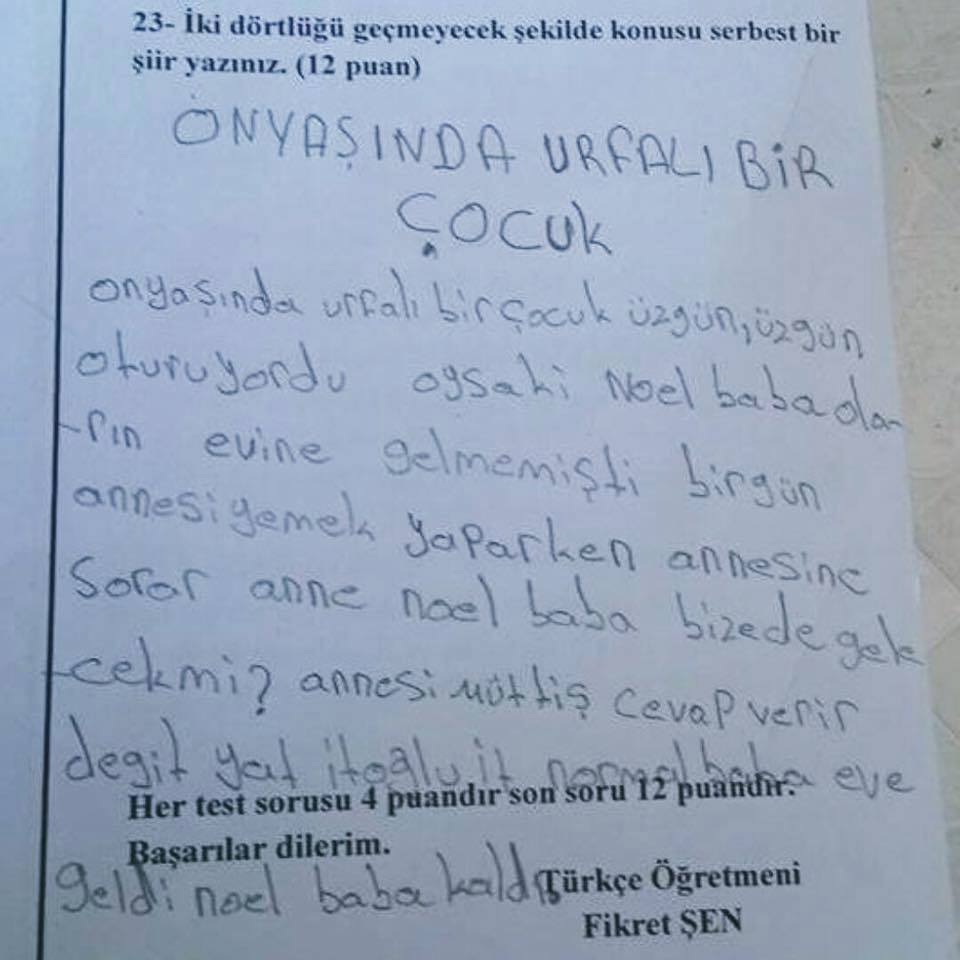 23- İki dörtlüğü geçmeyecek şekilde konusu serbest bir
şiir yazınız. (12 puan)
ONYAŞINDA URFALI BİR
ÇOCUK
onyaşında urfalı birçocuk üzgün,üzgün
oturuyordu oysaki Noel baba ola-
-rın evine gelmemişti birgün
annesiyemek yaparken annesine
Sorar anne noel baba bizede gele
-cekmi? annesi müttiş cevap verir
degit yat itoğlu it normal baba eve
Her test sorusu 4 puandır son soru 12 puandır.
Başarılar dilerim.
geldi noel baba kaldı
Türkçe Öğretmeni
Fikret ŞEN